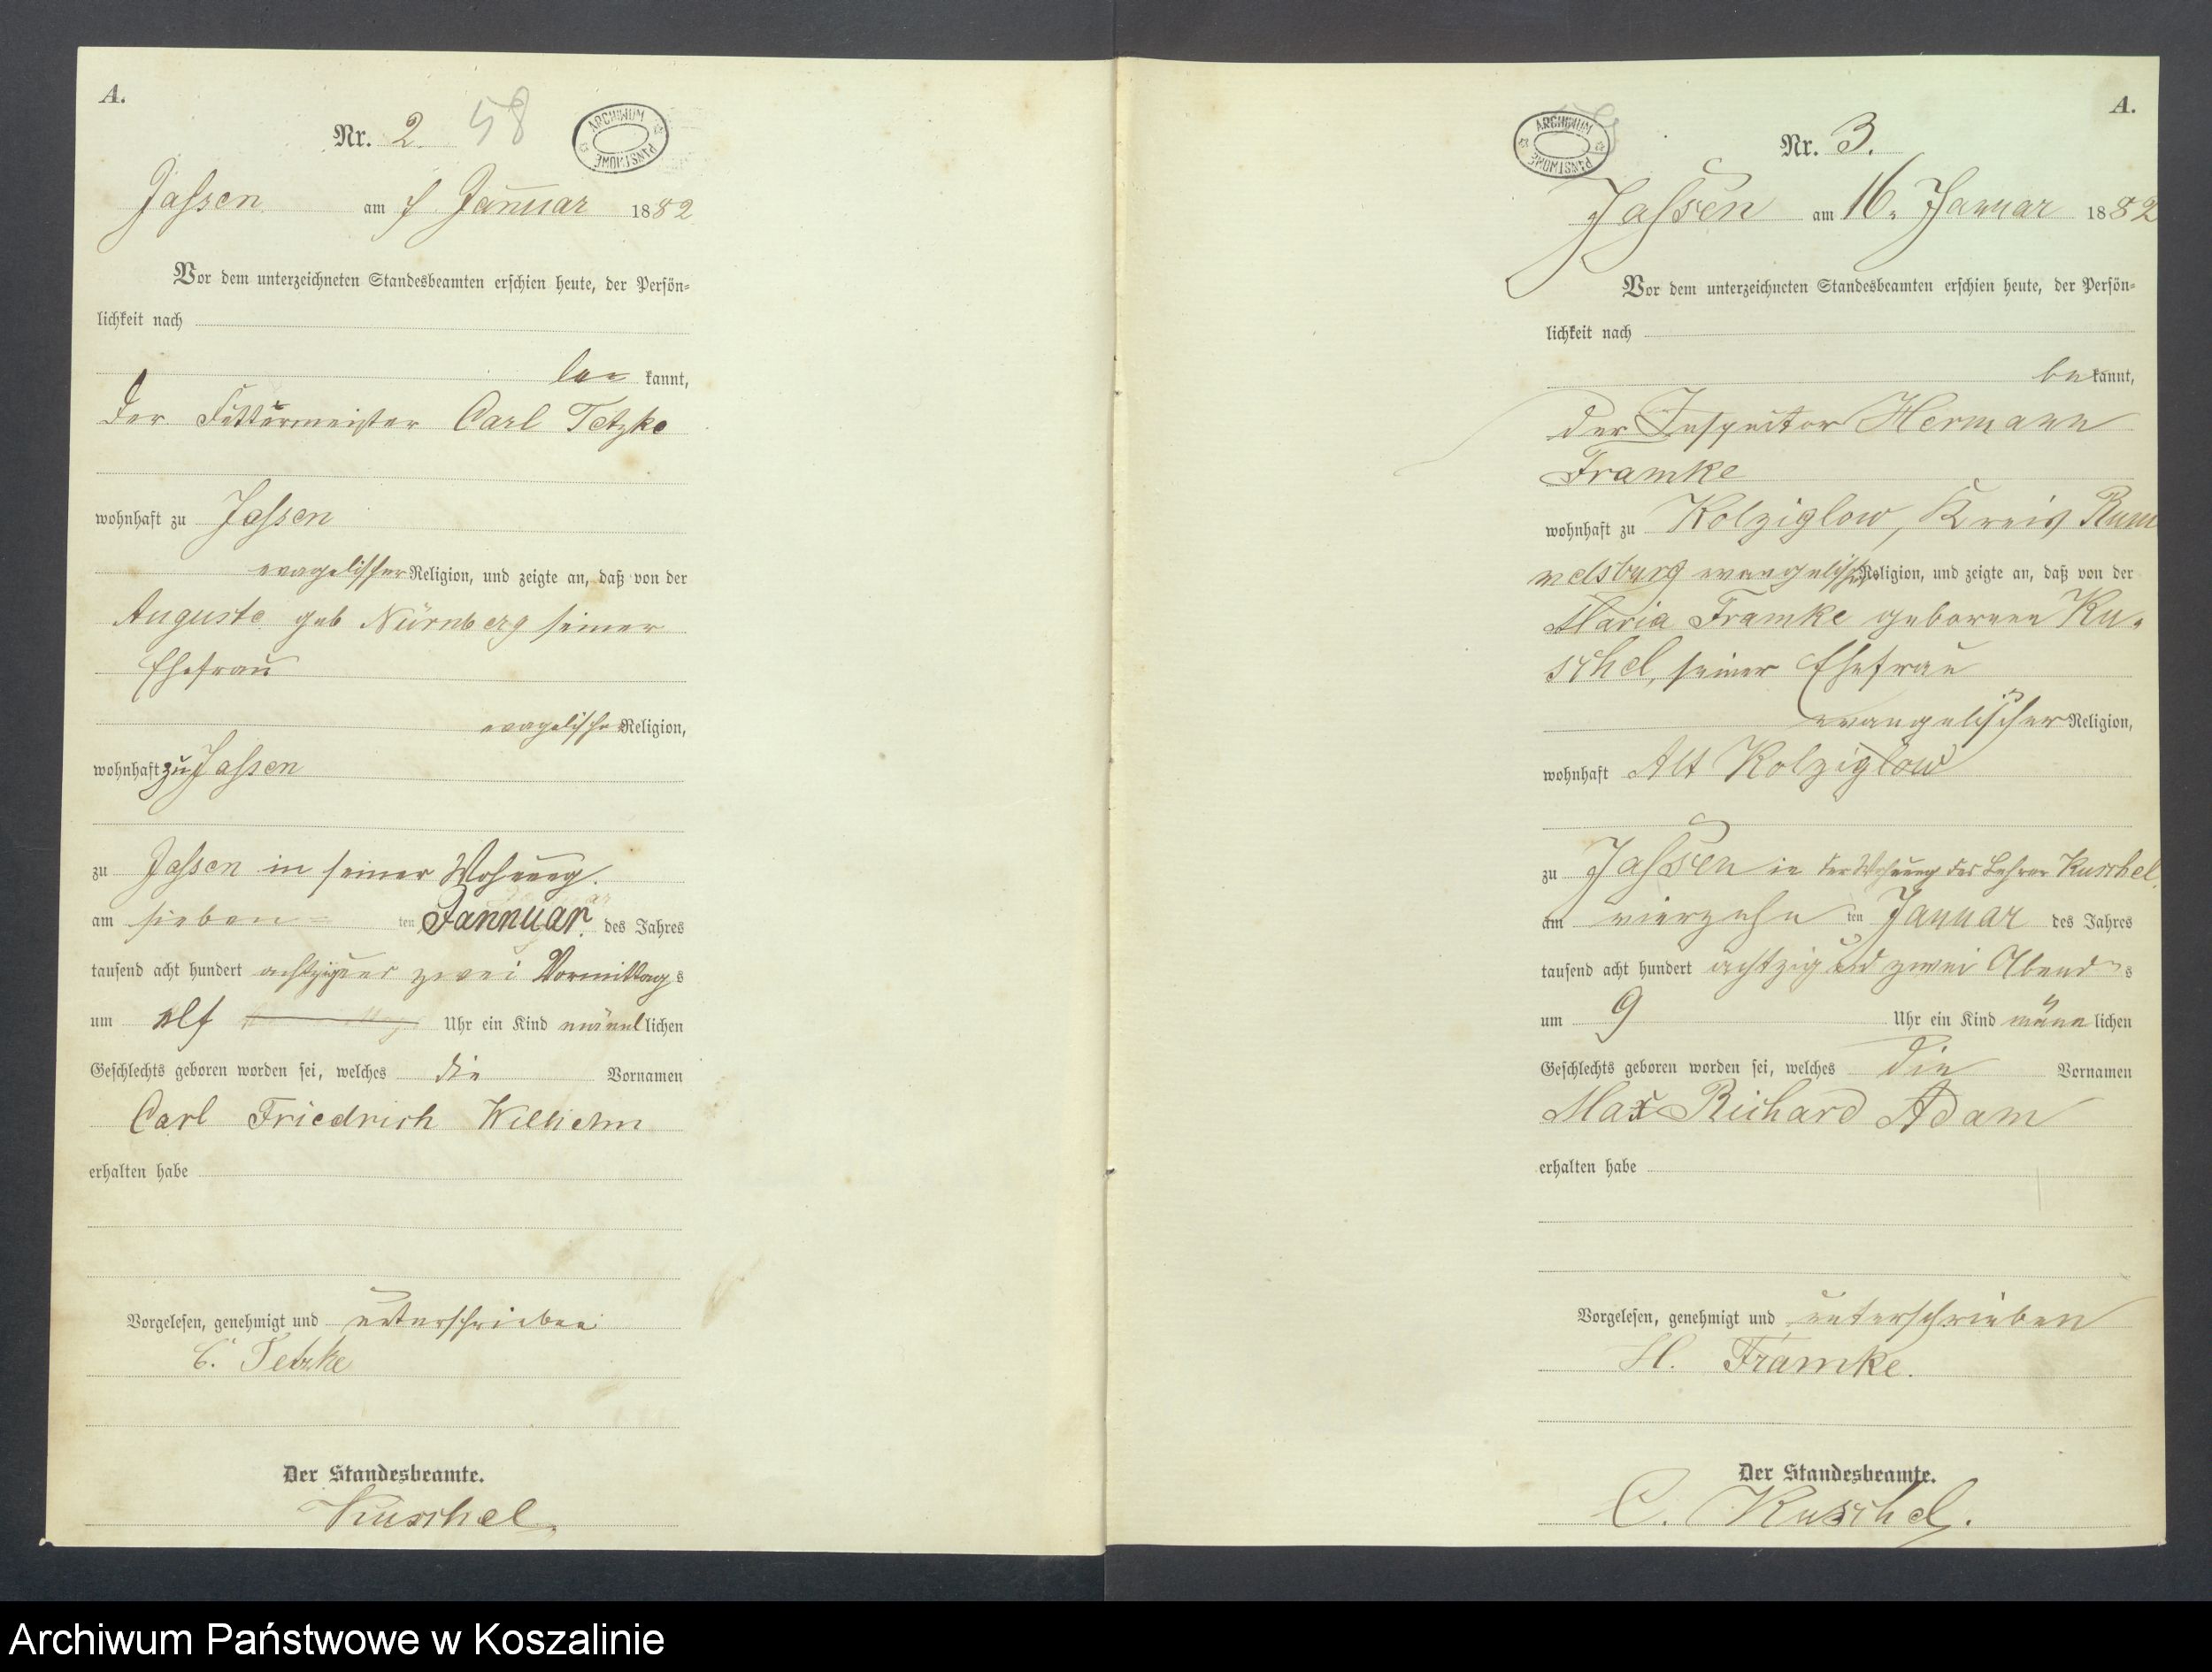 A.
Nr. 2. 58
ARCHIWUM PAŃSTWOWE
Jassen am Januar 1882
Vor dem unterzeichneten Standesbeamten erschien heute, der Persön-
lichkeit nach
be kannt,
der Futtermeister Carl Tetzke
wohnhaft zu Jassen
evagelischer Religion, und zeigte an, daß von der
Auguste geb Nürnberg seiner
Ehefrau
evagelischer Religion,
wohnhaft zu Jassen
zu Jassen in seiner Wohnung.
am sieben= ten Jannuar. des Jahres
tausend acht hundert achtzig und zwei Vormittags
um elf Uhr ein Kind männlichen
Geschlechts geboren worden sei, welches die Vornamen
Carl Friedrich Wilhelm
erhalten habe
Vorgelesen, genehmigt und unterschrieben
C. Tetzke
Der Standesbeamte.
Kuschel
A.
Nr. 3.
ARCHIWUM PAŃSTWOWE
Jassen am 16. Januar 1882
Vor dem unterzeichneten Standesbeamten erschien heute, der Persön-
lichkeit nach
bekannt,
der Inspector Hermann
Framke
wohnhaft zu Kolziglow, Kreis Rum
melsburg evangelischer Religion, und zeigte an, daß von der
Maria Framke geborenen Ku-
schel, seiner Ehefrau
evangelischer Religion,
wohnhaft Alt Kolziglow
zu Jassen in der Wohnung des Lehrer Kuschel.
am vierzehn ten Januar des Jahres
tausend acht hundert achtzig und zwei Abends
um 9 Uhr ein Kind männlichen
Geschlechts geboren worden sei, welches die Vornamen
Max Richard Adam
erhalten habe
Vorgelesen, genehmigt und unterschrieben
H. Framke.
Der Standesbeamte.
C. Kuschel.
Archiwum Państwowe w Koszalinie